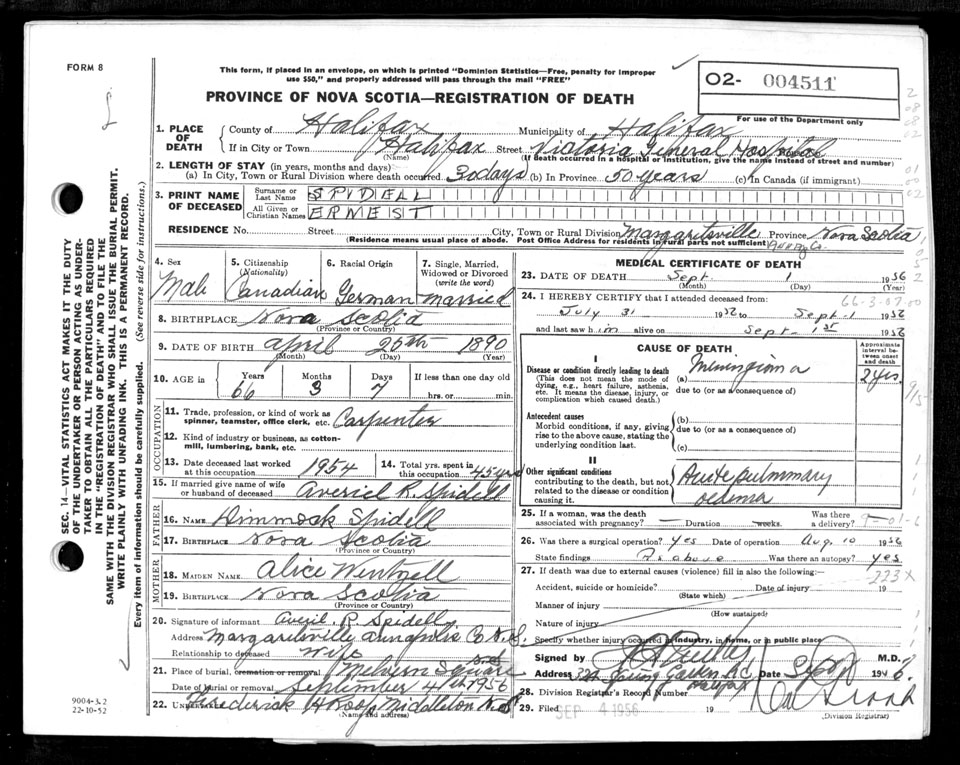 FORM 8
This form, if placed in an envelope, on which is printed "Dominion Statistics—Free, penalty for improper
use $50," and properly addressed will pass through the mail "FREE"
PROVINCE OF NOVA SCOTIA—REGISTRATION OF DEATH
02- 004511
For use of the Department only
1. PLACE OF DEATH County of Halifax Municipality of Halifax
If in City or Town Halifax Street Victoria General Hospital
(Name) (If death occurred in a hospital or institution, give the name instead of street and number)
2. LENGTH OF STAY (in years, months and days)
(a) In City, Town or Rural Division where death occurred 30 days (b) In Province 50 years (c) In Canada (if immigrant)
3. PRINT NAME OF DECEASED Surname or Last Name SPIDELL
All Given or Christian Names ERMEST
RESIDENCE No. Street City, Town or Rural Division Margaretsville Province Nova Scotia
(Residence means usual place of abode. Post Office Address for residents in rural parts not sufficient)
4. Sex 5. Citizenship (Nationality) 6. Racial Origin 7. Single, Married, Widowed or Divorced (write the word)
Male Canadian German Married
8. BIRTHPLACE Nova Scotia
(Province or Country)
9. DATE OF BIRTH April 25th 1890
(Month) (Day) (Year)
10. AGE in Years Months Days If less than one day old
66 3 7 hrs. or min.
OCCUPATION
11. Trade, profession, or kind of work as spinner, teamster, office clerk, etc. Carpenter
12. Kind of industry or business, as cotton-mill, lumbering, bank, etc.
13. Date deceased last worked at this occupation 1954 14. Total yrs. spent in this occupation 45 yrs
15. If married give name of wife or husband of deceased Averiel R. Spidell
FATHER
16. NAME Dimmock Spidell
17. BIRTHPLACE Nova Scotia
(Province or Country)
MOTHER
18. MAIDEN NAME Alice Wentzell
19. BIRTHPLACE Nova Scotia
(Province or Country)
20. Signature of informant Averil R. Spidell
Address Margaretsville Annapolis Co N.S.
Relationship to deceased Wife
21. Place of burial, cremation or removal Melvern Square N.S.
Date of burial or removal September 4th 1956
22. Undertaker Frederick Middleton N.S.
(Name and address)
MEDICAL CERTIFICATE OF DEATH
23. DATE OF DEATH Sept. 1 1956
(Month) (Day) (Year)
24. I HEREBY CERTIFY that I attended deceased from:
66-3-07-00
July 31 1956 to Sept-1 1956
and last saw him alive on Sept-1st 1956
CAUSE OF DEATH
Approximate interval between onset and death
I
Disease or condition directly leading to death
(This does not mean the mode of dying, e.g., heart failure, asthenia, etc. It means the disease, injury, or complication which caused death.)
(a) Miningioma 2 yrs.
due to (or as a consequence of)
Antecedent causes
Morbid conditions, if any, giving rise to the above cause, stating the underlying condition last.
(b)
due to (or as a consequence of)
(c)
II
Other significant conditions
contributing to the death, but not related to the disease or condition causing it.
Acute pulmonary
oedema
25. If a woman, was the death associated with pregnancy? — Duration weeks. Was there a delivery?
26. Was there a surgical operation? yes Date of operation Aug. 10 1956
State findings As above Was there an autopsy? yes
27. If death was due to external causes (violence) fill in also the following: 223X
Accident, suicide or homicide? Date of injury 19
(State which)
Manner of injury
(How sustained)
Nature of injury
Specify whether injury occurred in industry, in home, or in public place
Signed by M.D.
Address Spring Garden Rd Halifax Date 1956.
28. Division Registrar's Record Number
29. Filed SEP 4 1956 19
(Division Registrar)
SEC. 14—VITAL STATISTICS ACT MAKES IT THE DUTY
OF THE UNDERTAKER OR PERSON ACTING AS UNDER-
TAKER TO OBTAIN ALL THE PARTICULARS REQUIRED
IN THE "REGISTRATION OF DEATH" AND TO FILE THE
SAME WITH THE DIVISION REGISTRAR WHO SHALL ISSUE THE BURIAL PERMIT.
WRITE PLAINLY WITH UNFADING INK. THIS IS A PERMANENT RECORD.
Every item of information should be carefully supplied. (See reverse side for instructions.)
9004-3.2
22-10-52